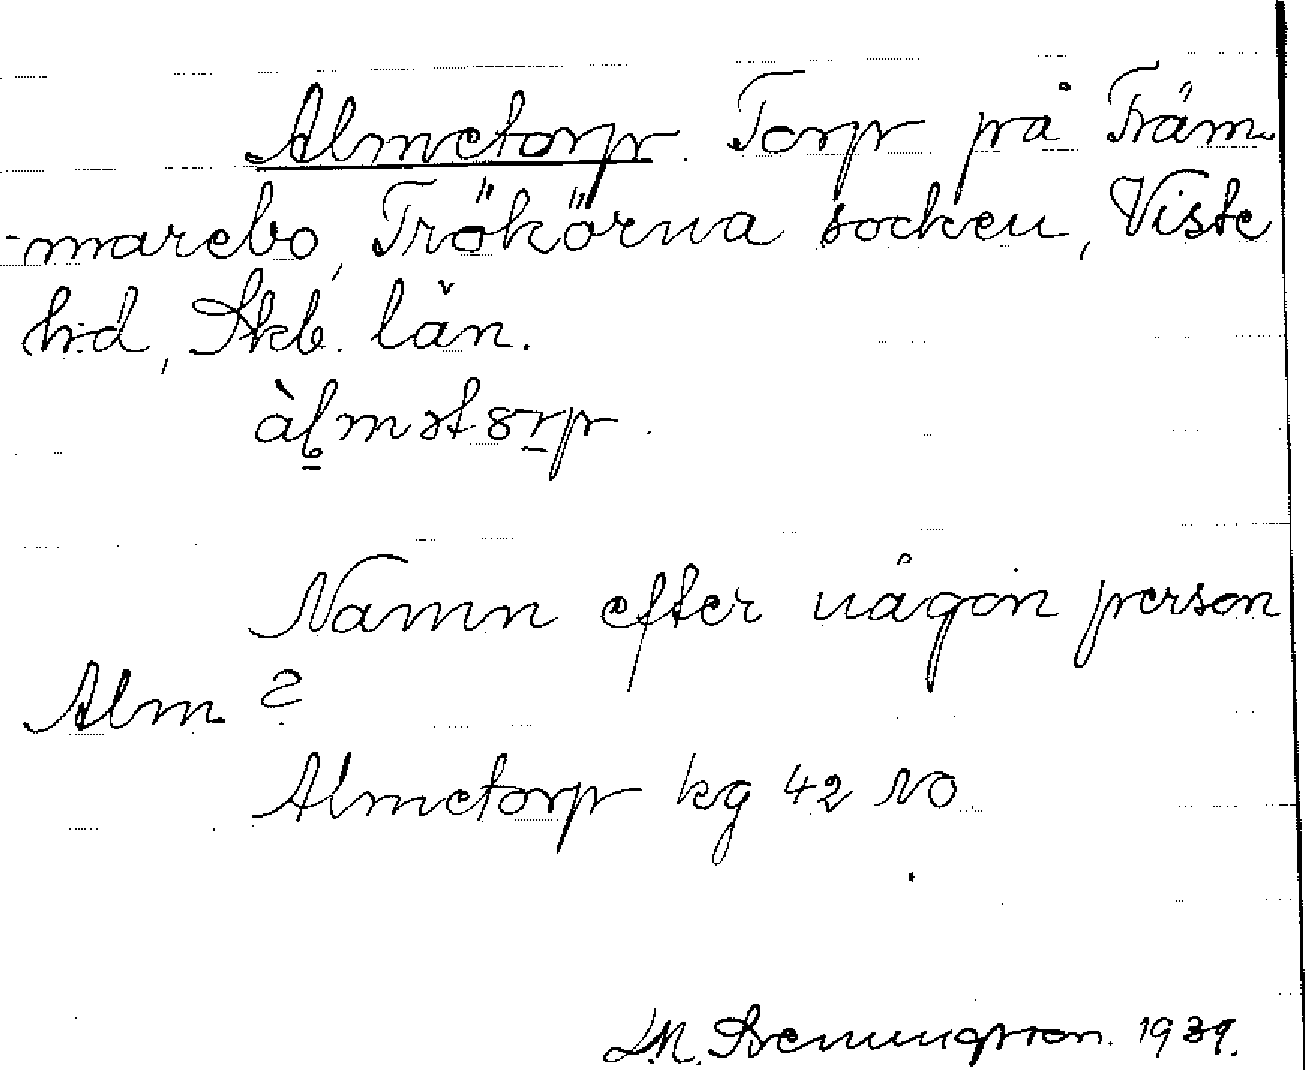 Almetorp. Torp på Främ-
marebo, Trökörna socken, Viste
h:d, Skb. län.
àl̥mət8rp.
Namn efter någon person
Alm?
Almetorp kg 42 NO
1939.